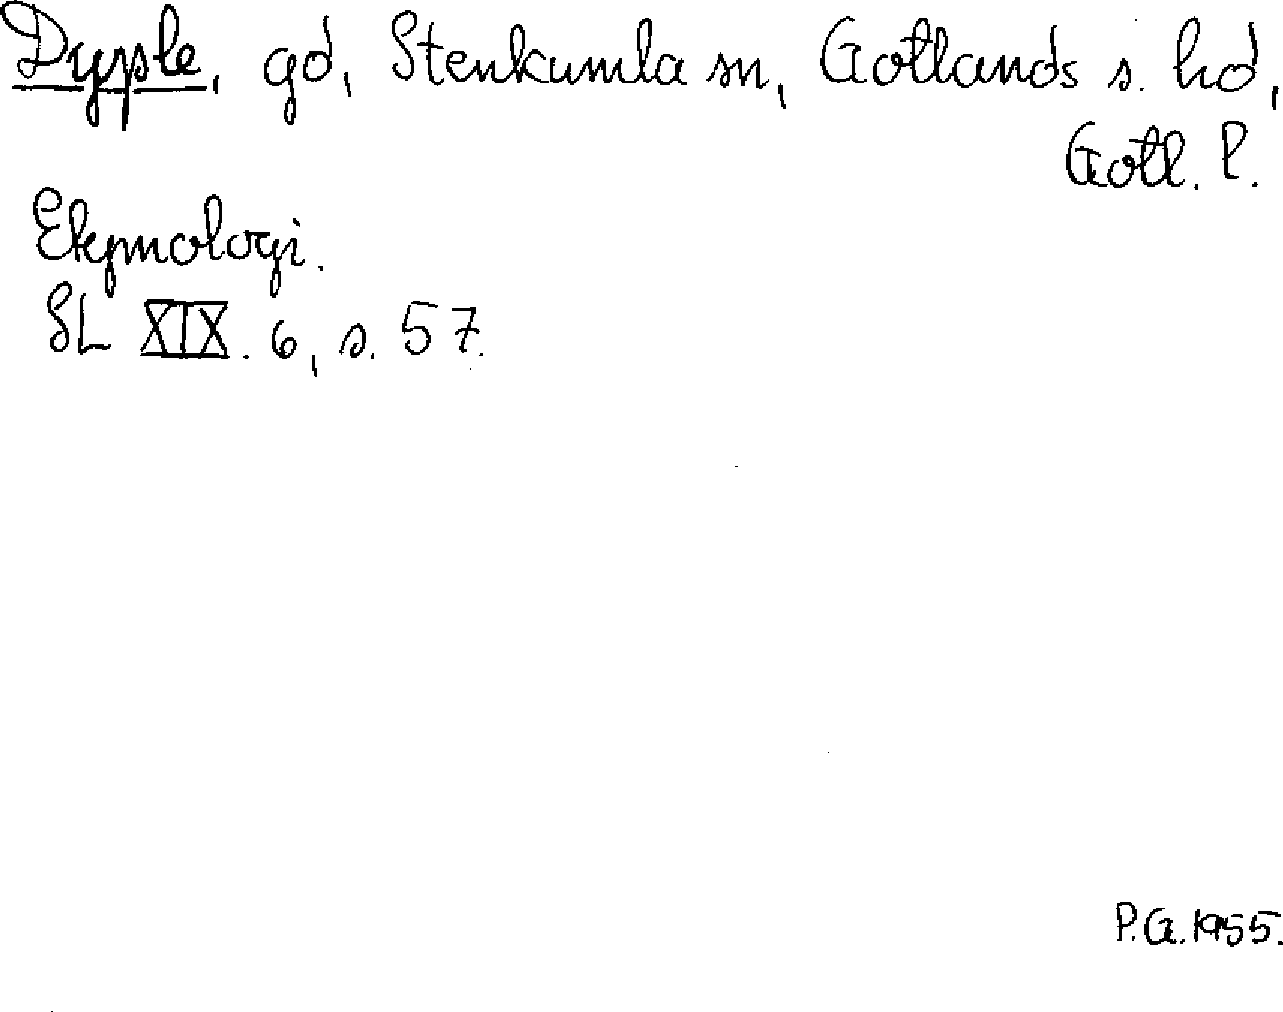 Dyple, gd, Stenkumla sn, Gotlands s. hd,
Gotl. l.
Etymologi.
SL XIX. 6, s. 57.
P.G. 1955.